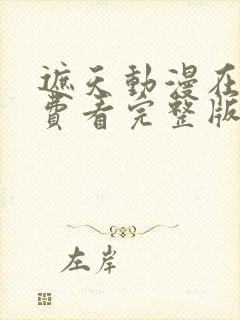 遮天動漫在
費看完整版
左岸